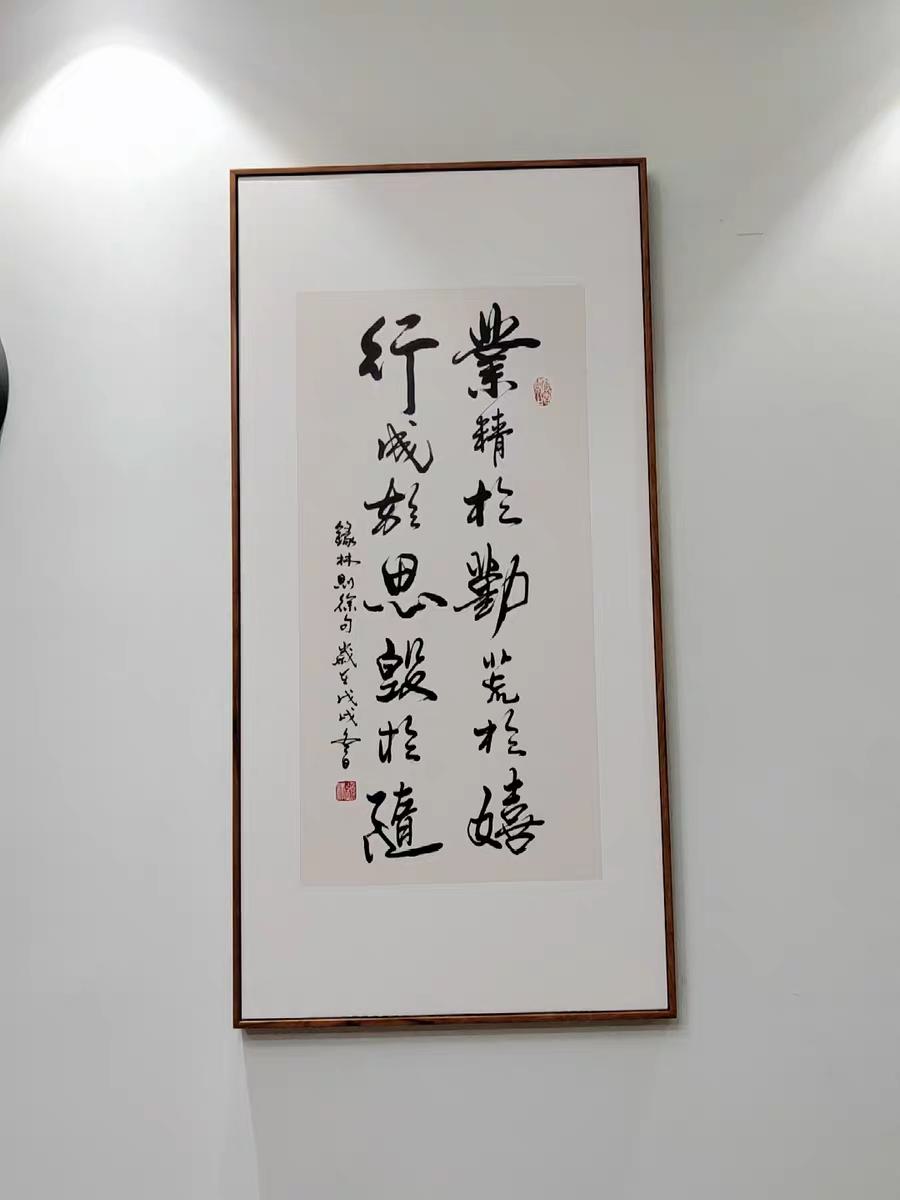 業精於勤荒於嬉
行成於思毀於隨
錄林則徐句歲在戊戌冬日